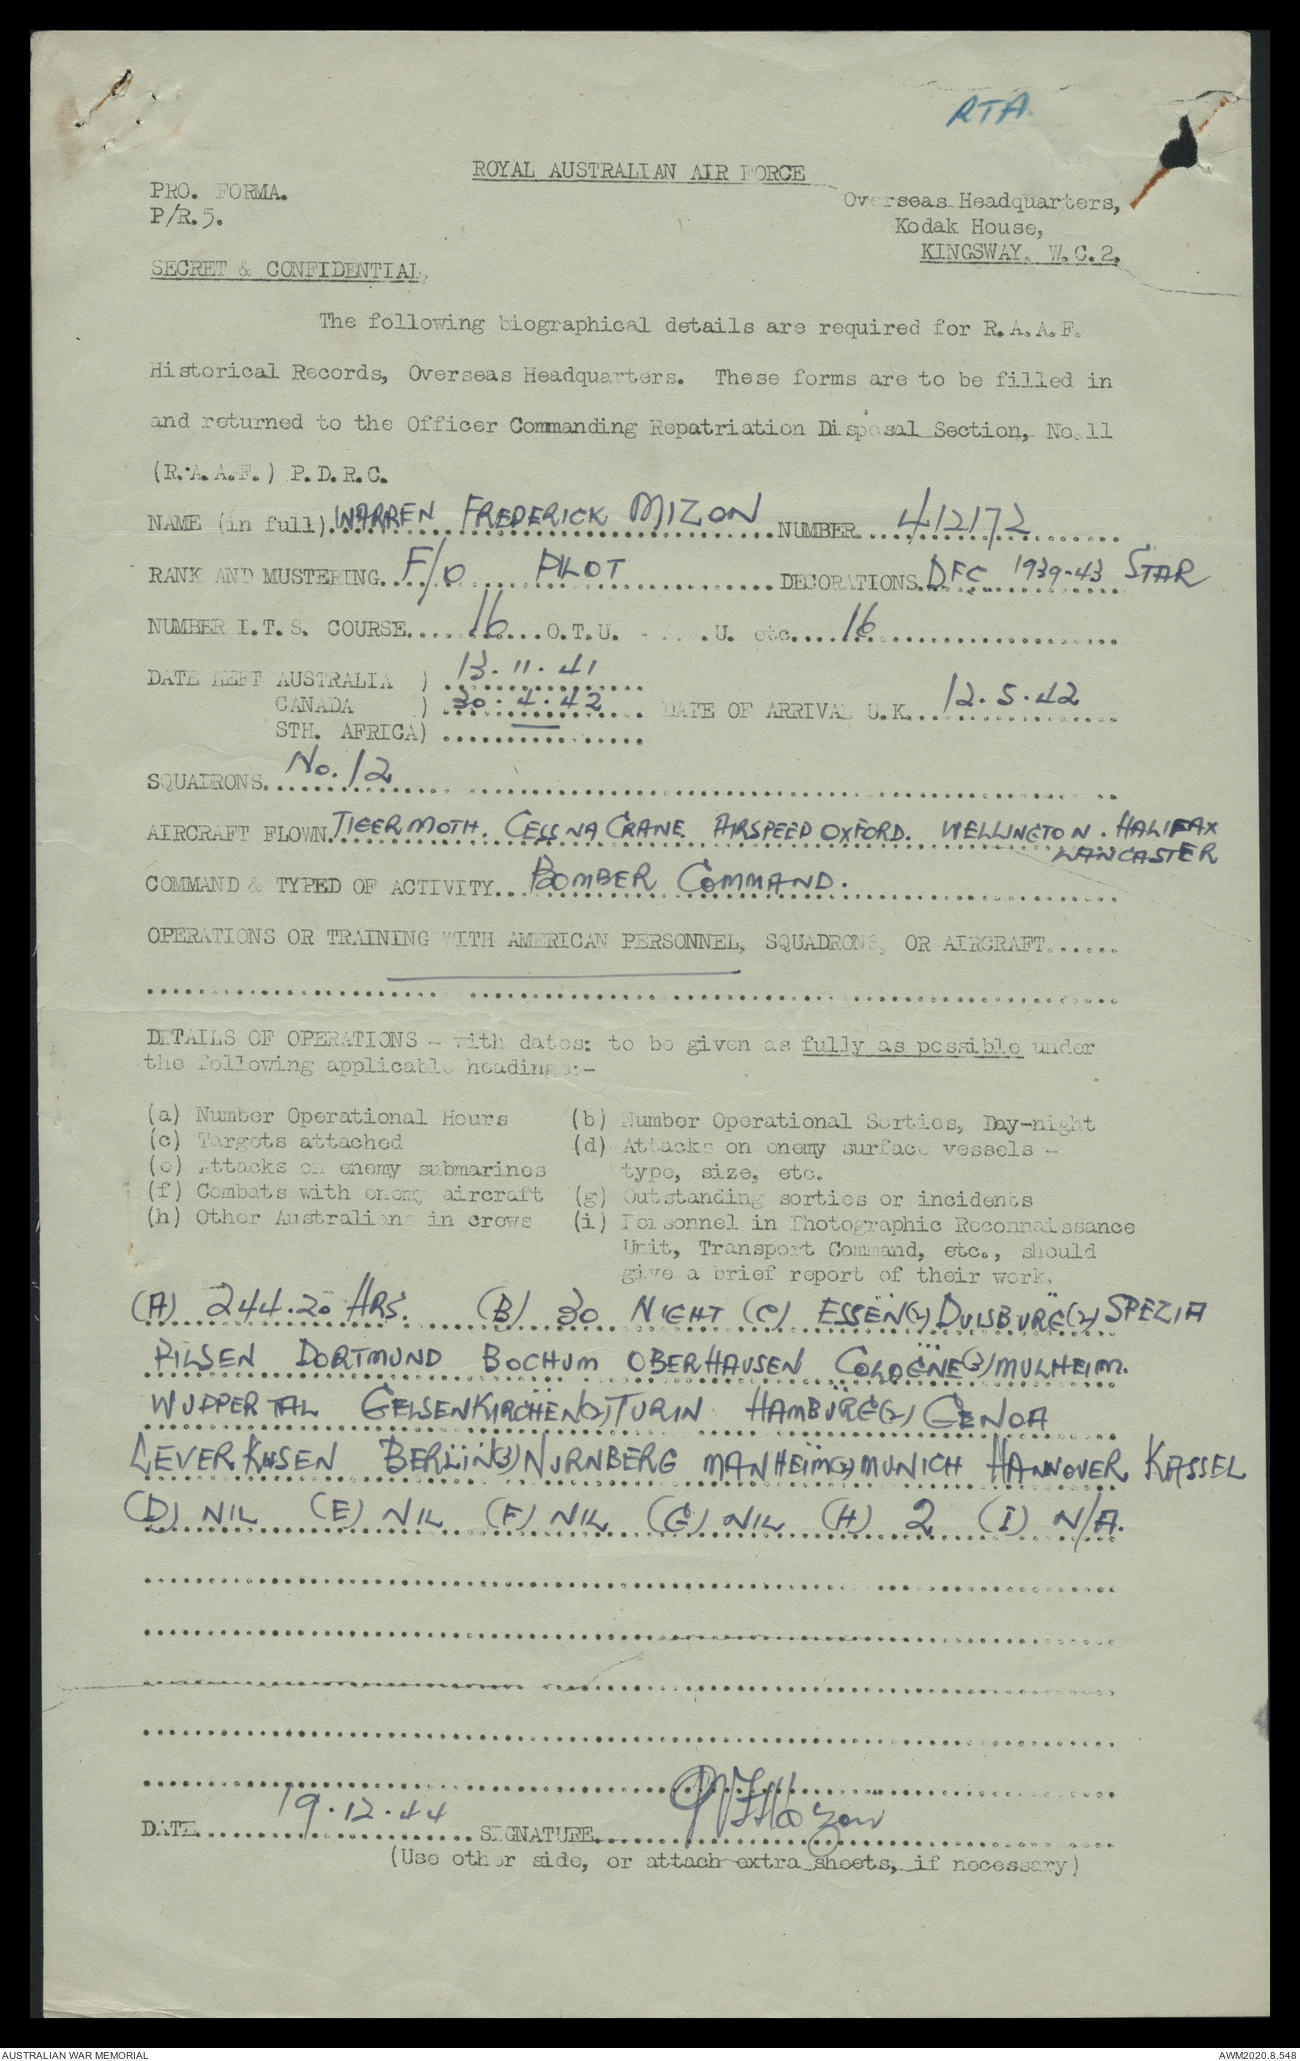 RTA
ROYAL AUSTRALIAN AIR FORCE
PRO. FORMA.
P/R.5.
Overseas Headquarters,
Kodak House,
KINGSWAY, W.C.2.
SECRET & CONFIDENTIAL.
The following biographical details are required for R.A.A.F.
Historical Records, Overseas Headquarters. These forms are to be filled in
and returned to the Officer Commanding Repatriation Disposal Section, No.11
(R.A.A.F.) P.D.R.C.
NAME (in full). WARREN FREDERICK MIZON NUMBER 412172
RANK AND MUSTERING. F/O PILOT DECORATIONS. DFC 1939-43 STAR
NUMBER I.T.S. COURSE. 16 O.T.U. .U. etc. 16
DATE LEFT AUSTRALIA ) 13.11.41
CANADA ) 30.4.42 DATE OF ARRIVAL U.K. 12.5.42
STH. AFRICA)
SQUADRONS. No. 12
AIRCRAFT FLOWN. TIGER MOTH. CESSNA CRANE. AIRSPEED OXFORD. WELLINGTON. HALIFAX
LANCASTER
COMMAND & TYPED OF ACTIVITY. BOMBER COMMAND.
OPERATIONS OR TRAINING WITH AMERICAN PERSONNEL, SQUADRONS, OR AIRCRAFT
DETAILS OF OPERATIONS - with dates: to be given as fully as possible under
the following applicable headings:-
(a) Number Operational Hours (b) Number Operational Sorties, Day-night
(c) Targets attached (d) Attacks on enemy surface vessels -
(e) Attacks on enemy submarines type, size, etc.
(f) Combats with enemy aircraft (g) Outstanding sorties or incidents
(h) Other Australians in crews (i) Personnel in Photographic Reconnaissance
Unit, Transport Command, etc., should
give a brief report of their work.
(A) 244.20 HRS. (B) 30 NIGHT (C) ESSEN(2) DUISBURG(2) SPEZIA
PILSEN DORTMUND BOCHUM OBERHAUSEN COLOGNE(3) MULHEIM.
WUPPERTAL GELSENKIRCHEN(2) TURIN HAMBURG(2) GENOA
LEVERKUSEN BERLIN(3) NURNBERG MANHEIM(2) MUNICH HANNOVER KASSEL
(D) NIL (E) NIL (F) NIL (G) NIL (H) 2 (I) N/A.
DATE 19.12.44 SIGNATURE WFMizon
(Use other side, or attach extra sheets, if necessary)
AUSTRALIAN WAR MEMORIAL AWM2020.8.548